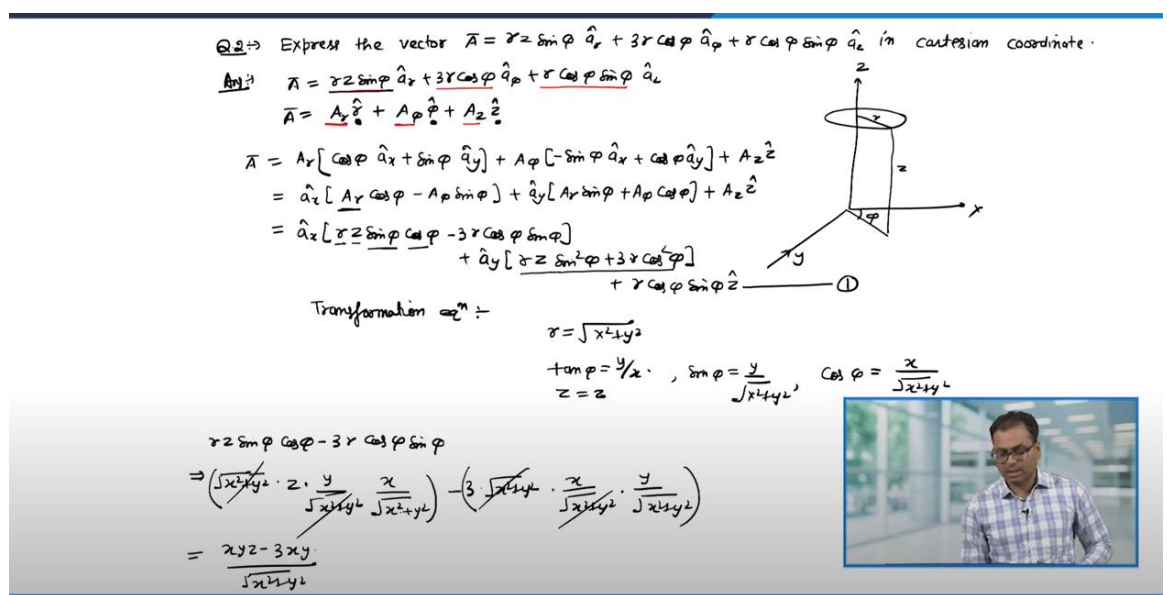 Q2:→ Express the vector A̅ = rz sinφ âᵣ + 3r cosφ â_φ + r cosφ sinφ â_z in cartesian coordinate.
Ans:- A̅ = rz sinφ âᵣ + 3r cosφ â_φ + r cosφ sinφ â_z
A̅ = Aᵣ r̂ + A_φ φ̂ + A_z ẑ
A̅ = Aᵣ[cosφ âₓ + sinφ â_y] + A_φ[-sinφ âₓ + cosφ â_y] + A_z ẑ
= âₓ[Aᵣ cosφ - A_φ sinφ] + â_y[Aᵣ sinφ + A_φ cosφ] + A_z ẑ
= âₓ[rz sinφ cosφ - 3r cosφ sinφ]
+ â_y[rz sin²φ + 3r cos²φ]
+ r cosφ sinφ ẑ ——— ①
z
r
z
φ
x
y
Transformation eqⁿ ÷
r = √x²+y²
tanφ = y/x. , sinφ = y/√x²+y² , cosφ = x/√x²+y²
z = z
rz sinφ cosφ - 3r cosφ sinφ
⇒ (√x²+y² · z · y/√x²+y² · x/√x²+y²) - (3 · √x²+y² · x/√x²+y² · y/√x²+y²)
= xyz - 3xy/√x²+y²